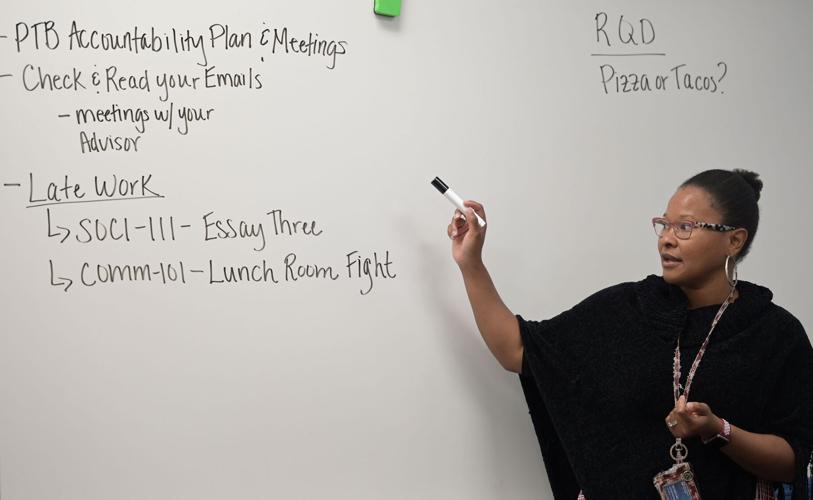 - PTB Accountability Plan & Meetings
- Check & Read your Emails
- meetings w/ your
Advisor
- Late Work
↳ SOCI-111- Essay Three
↳ COMM-101 - Lunch Room Fight
RQD
Pizza or Tacos?